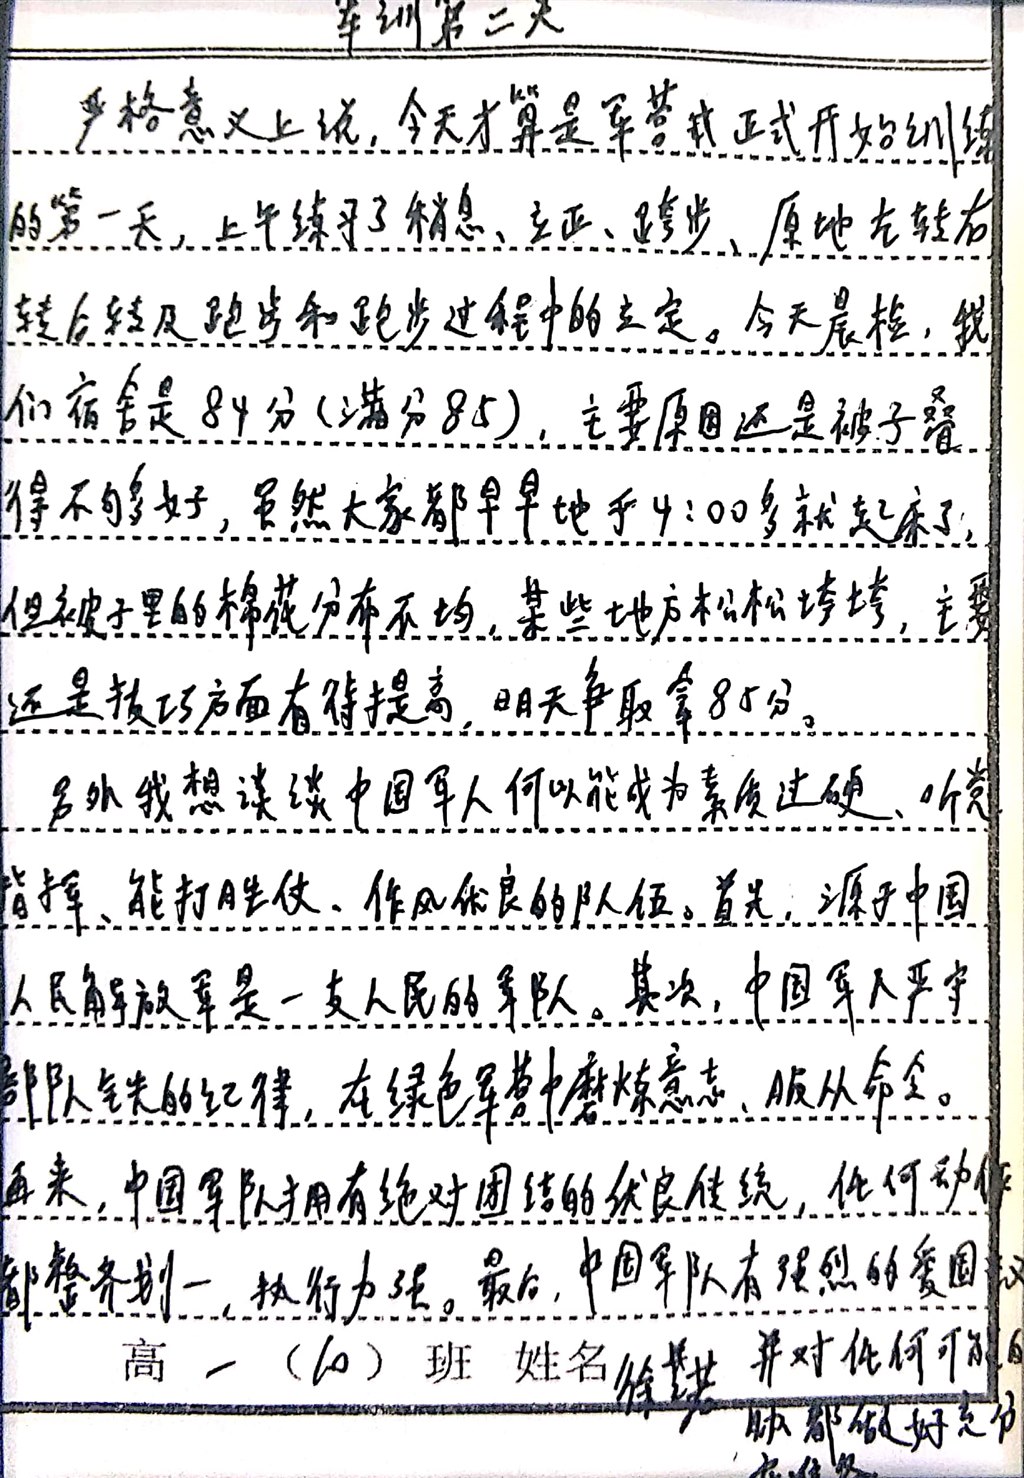 军训第二天
严格意义上说，今天才算是军营式正式开始训练
的第一天，上午练习了稍息、立正、跨步、原地左转右
转后转及跑步和跑步过程中的立定。今天晨检，我
们宿舍是84分（满分85），主要原因还是被子叠
得不够好，虽然大家都早早地于4:00多就起床了，
但被子里的棉花分布不均，某些地方松松垮垮，主要
还是技巧方面有待提高，明天争取拿85分。
另外我想谈谈中国军人何以能成为素质过硬、听党
指挥、能打胜仗、作风优良的队伍。首先，源于中国
人民解放军是一支人民的军队。其次，中国军人严守
部队铁的纪律，在绿色军营中磨炼意志、服从命令。
再来，中国军队拥有绝对团结的优良传统，任何动作
都整齐划一，执行力强。最后，中国军队有强烈的爱国
高一（10）班 姓名 徐
并对任何可能的
都做好充分